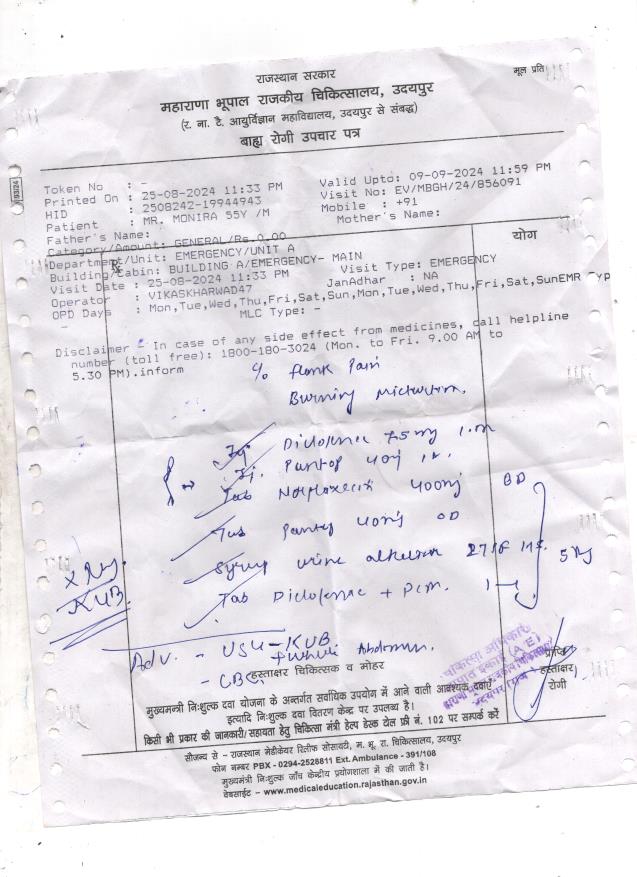 राजस्थान सरकार
मूल प्रति
महाराणा भूपाल राजकीय चिकित्सालय, उदयपुर
(र. ना. टै. आयुर्विज्ञान महाविद्यालय, उदयपुर से संबद्ध)
बाह्य रोगी उपचार पत्र
Token No : -
Printed On : 25-08-2024 11:33 PM Valid Upto: 09-09-2024 11:59 PM
HID : 2508242-19944943 Visit No: EV/MBGH/24/856091
Patient : MR. MONIRA 55Y /M Mobile : +91
Father's Name: Mother's Name:
Category/Amount: GENERAL/Rs.0.00
योग
Department/Unit: EMERGENCY/UNIT A
Rx
Building/Cabin: BUILDING A/EMERGENCY- MAIN
Visit Date : 25-08-2024 11:33 PM Visit Type: EMERGENCY
Operator : VIKASKHARWAD47 JanAdhar : NA
OPD Days : Mon,Tue,Wed,Thu,Fri,Sat,Sun,Mon,Tue,Wed,Thu,Fri,Sat,SunEMR Typ
- MLC Type: -
Disclaimer - In case of any side effect from medicines, call helpline
number (toll free): 1800-180-3024 (Mon. to Fri. 9.00 AM to
5.30 PM).inform
c/o flank Pain
Burning micturition.
Inj. Diclofenac 75 mg I.M
Inj. Pantop 40mg IV.
Tab Norfloxacin 400mg BD
Tab Pantop 40mg OD
Syrup urine alkaliser 2 TSF
5
Tab Diclofenac + Pcm.
X Ray
KUB
Adv. - USG - KUB
+ whole Abdomen.
- CBC
हस्ताक्षर चिकित्सक व मोहर
हस्ताक्षर
रोगी
मुख्यमन्त्री निःशुल्क दवा योजना के अन्तर्गत सर्वाधिक उपयोग में आने वाली आवश्यक दवाएं
इत्यादि निःशुल्क दवा वितरण केन्द्र पर उपलब्ध है।
किसी भी प्रकार की जानकारी/सहायता हेतु चिकित्सा मंत्री हेल्प डेस्क टोल फ्री नं. 102 पर सम्पर्क करें
सौजन्य से - राजस्थान मेडीकेयर रिलीफ सोसायटी, म. भू. रा. चिकित्सालय, उदयपुर
फोन नम्बर PBX - 0294-2528811 Ext. Ambulance - 391/108
मुख्यमन्त्री निःशुल्क जाँच केन्द्रीय प्रयोगशाला में की जाती है।
वेबसाईट - www.medicaleducation.rajasthan.gov.in